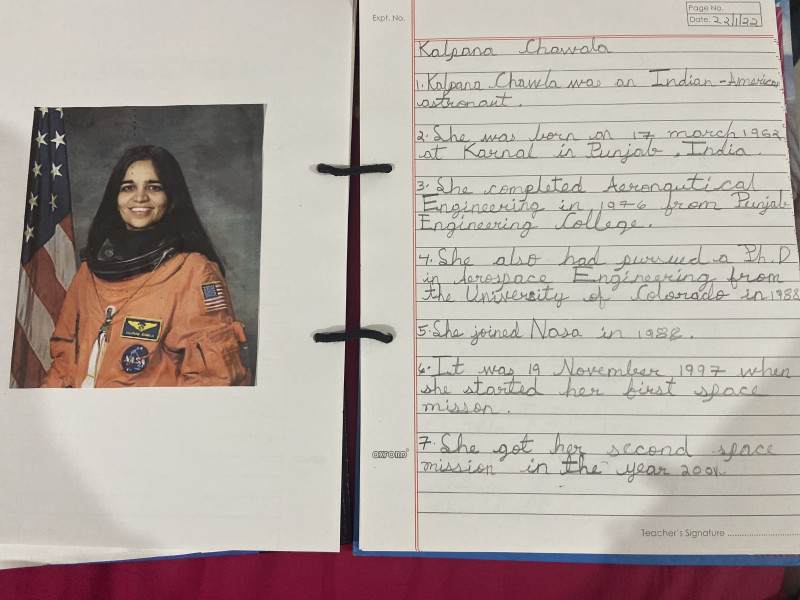 Expt. No.
Page No.
Date. 22/1/22
Kalpana Chawala
1. Kalpana Chawla was an Indian-America
astronaut.
2. She was born on 17 march 1962
at Karnal in Punjab, India.
3. She completed Aeronautical
Engineering in 1976 from Punjab
Engineering College.
4. She also had pursued a Ph.D
in Aerospace Engineering from
the University of Colorado in 1988
5. She joined Nasa in 1988.
6. It was 19 November 1997 when
she started her first space
misson.
7. She got her second space
mission in the year 2001.
OXFORD
Teacher's Signature
NASA